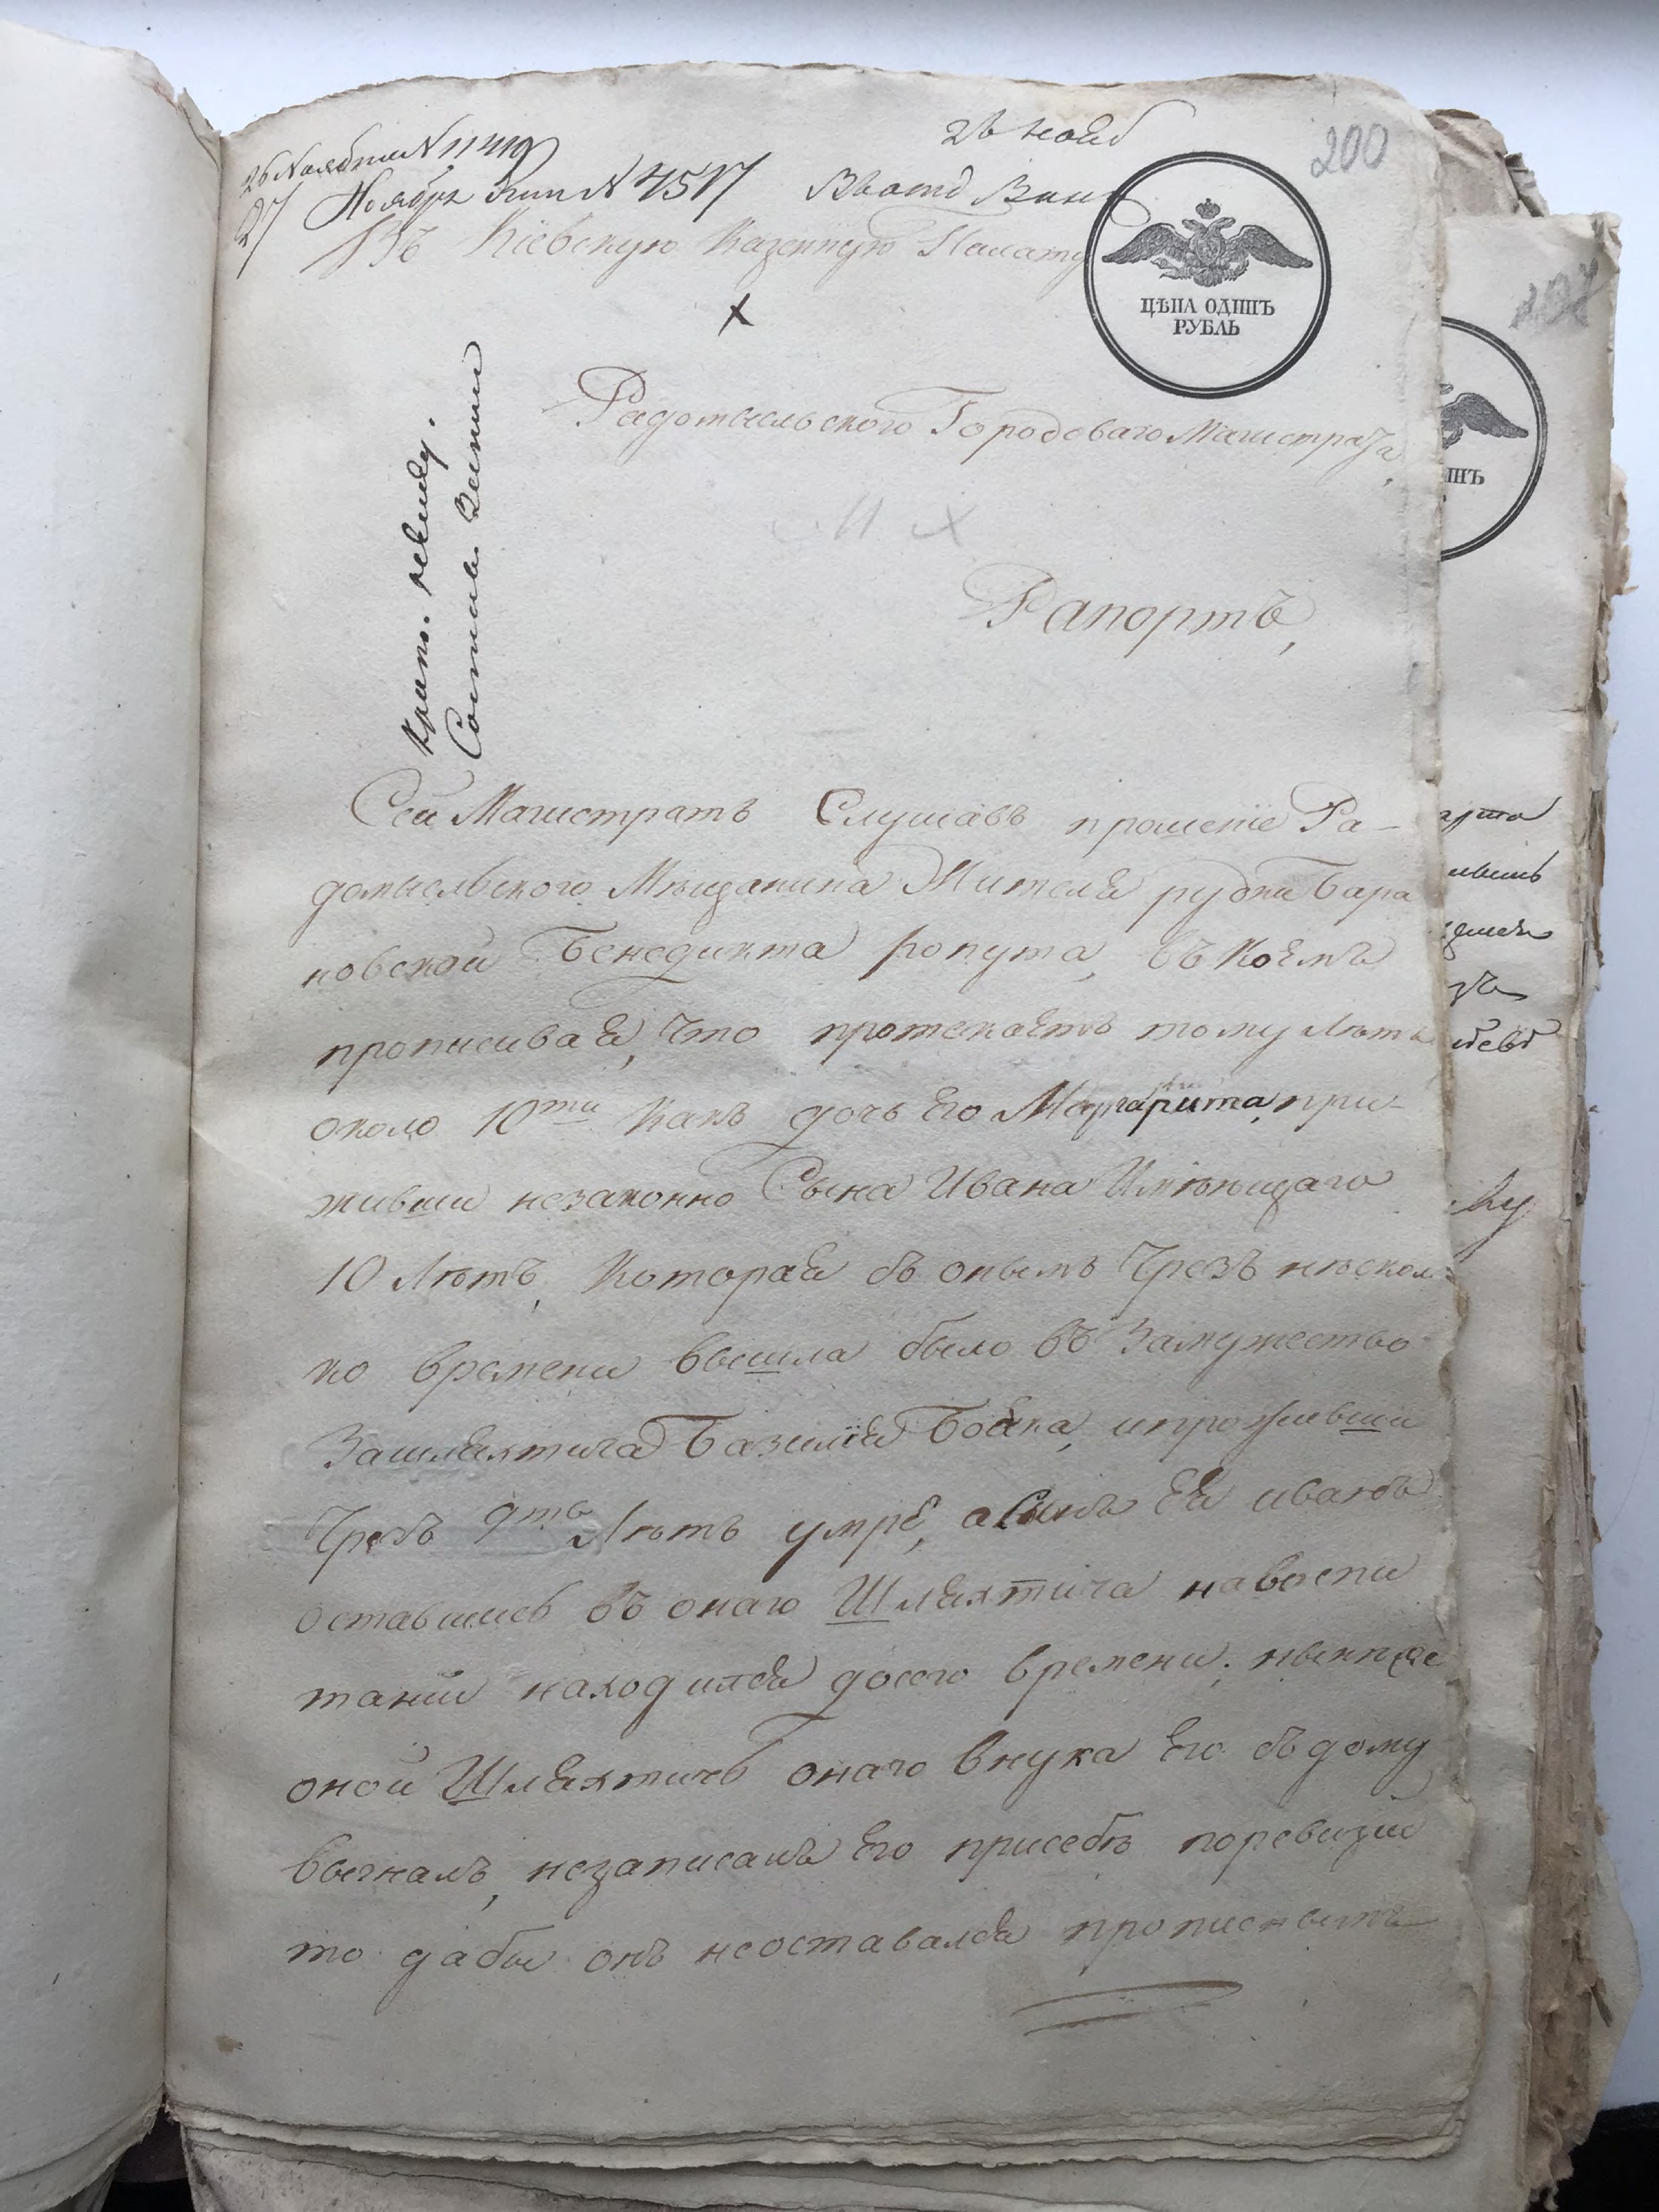 26 Ноября N 11419
27 Ноября N 4517
26 нояб
200
Въ Кіевскую Казенную Палату
ЦѢНА ОДИНЪ
РУБЛЬ
Радомысльского Городоваго Магистрата,
Рапортъ,
Сей Магистратъ Слушавъ прошеніе Ра-
домысльского Мѣщанина Жителя рудни Бара
новской Бенедикта ропута, въ коемъ
прописивая, что протекаетъ тому лѣтъ
около 10ти какъ дочь его Маргарита, при-
живши незаконно Сына Ивана Имѣющаго
10 лѣтъ, которая съ онымъ чрезъ нѣсколь
ко времени вышла было въ Замужество
Зашляхтича Базилія Бойка, ипроживши
чрезъ 9ть лѣтъ умре, асынъ ея иванъ
оставшись въ онаго Шляхтича навоспи
таніи находился досего времени; нынѣ же
оной Шляхтичъ онаго внука его съдому
выгналъ, незаписавъ его присебѣ поревизіи
то дабы онъ неоставался прописнымъ